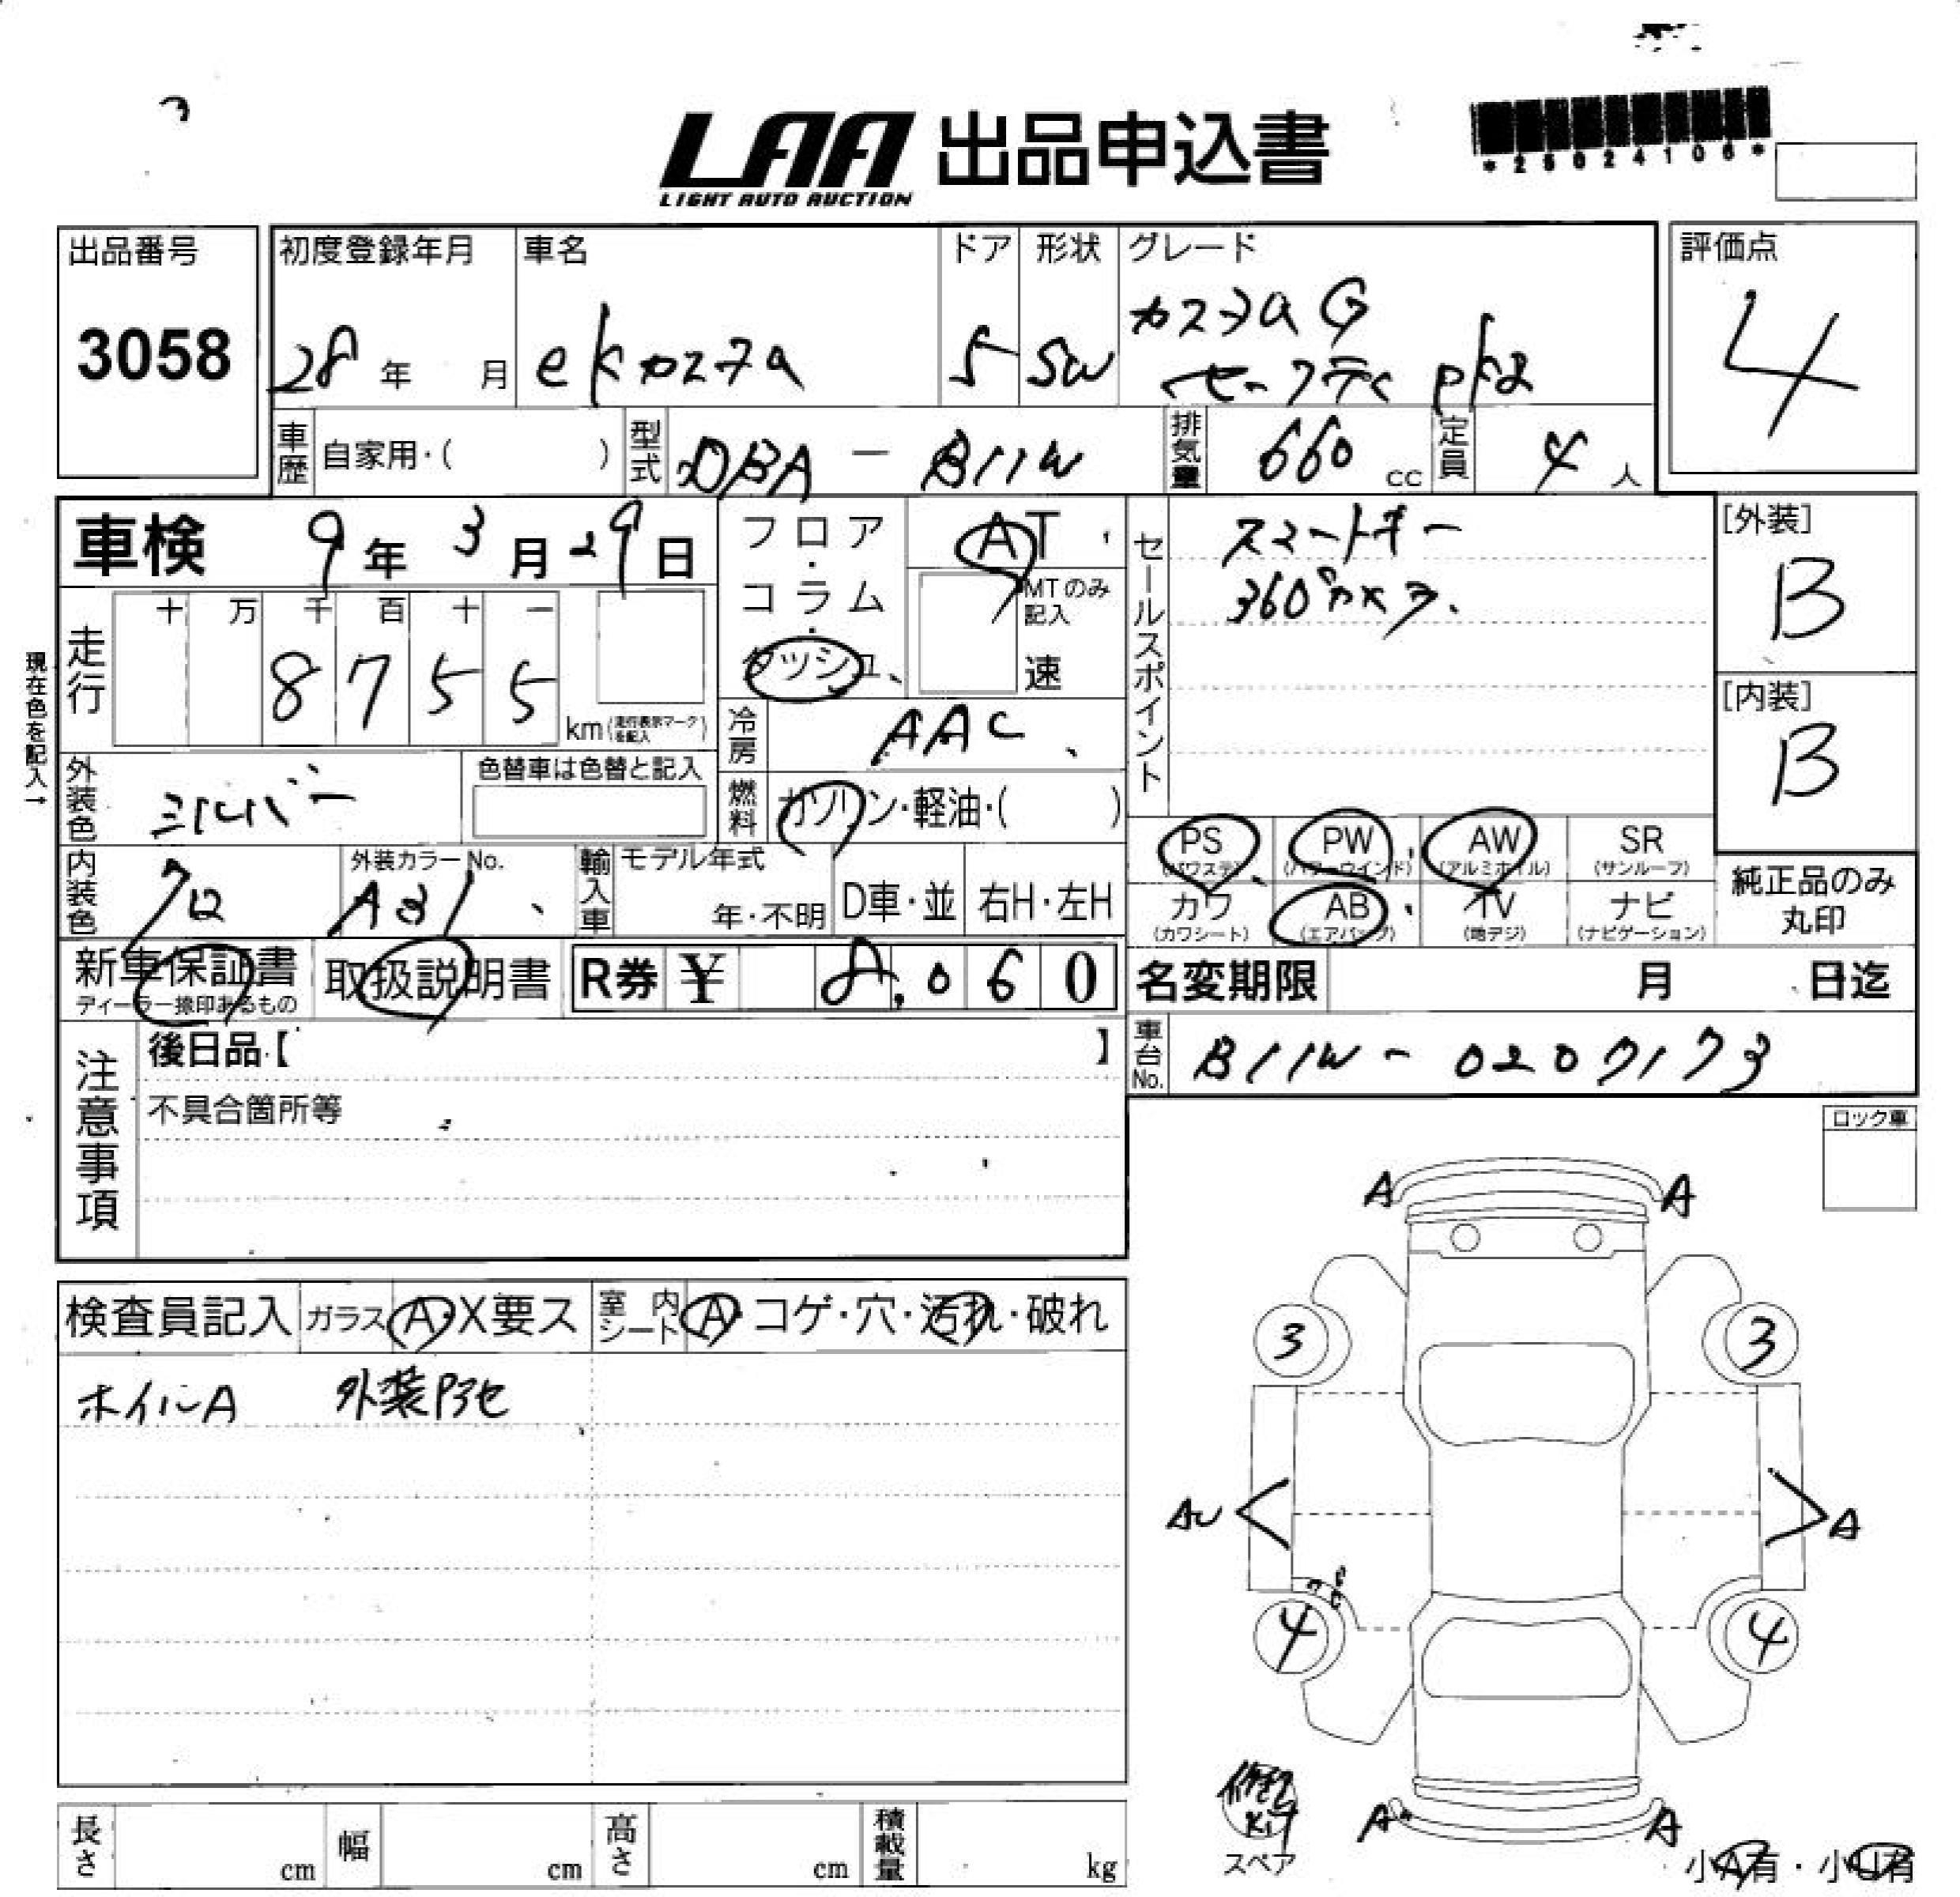 LAA 出品申込書
LIGHT AUTO AUCTION
*25024106*
出品番号
3058
初度登録年月
28年 月
車名
ekカスタム
ドア
5
形状
SW
グレード
カスタムG
セーフティpkg
評価点
4
車歴 自家用・( )
型式 DBA-B11W
排気量 660 cc
定員 4 人
車検 9年3月29日
フロア・コラム・ダッシュ
AT
MTのみ記入
速
セールスポイント
スマートキー
360°カメラ
[外装]
B
[内装]
B
現在色を記入→
走行
十 万 千 百 十 一
8755
km(走行表示マークを記入)
冷房 AAC
外装色 シルバー
色替車は色替と記入
燃料 ガソリン・軽油・( )
PS
(パワステ)
PW
(パワーウインド)
AW
(アルミホイル)
SR
(サンルーフ)
カワ
(カワシート)
AB
(エアバッグ)
TV
(地デジ)
ナビ
(ナビゲーション)
純正品のみ
丸印
内装色 クロ
外装カラーNo.
A31
輸入車
モデル年式
年・不明
D車・並
右H・左H
新車保証書
ディーラー捺印あるもの
取扱説明書
R券 ¥ 8,060
名変期限 月 日迄
車台No. B11W-0207173
注意事項
後日品【 】
不具合箇所等
ロック車
検査員記入
ガラス A・X要ス
室内シート A・コゲ・穴・汚れ・破れ
ホイルA
A A
3 3
AU A
4 4
A A
修理Kit
スペア
小A有・小U有
長さ cm
幅 cm
高さ cm
積載量 kg